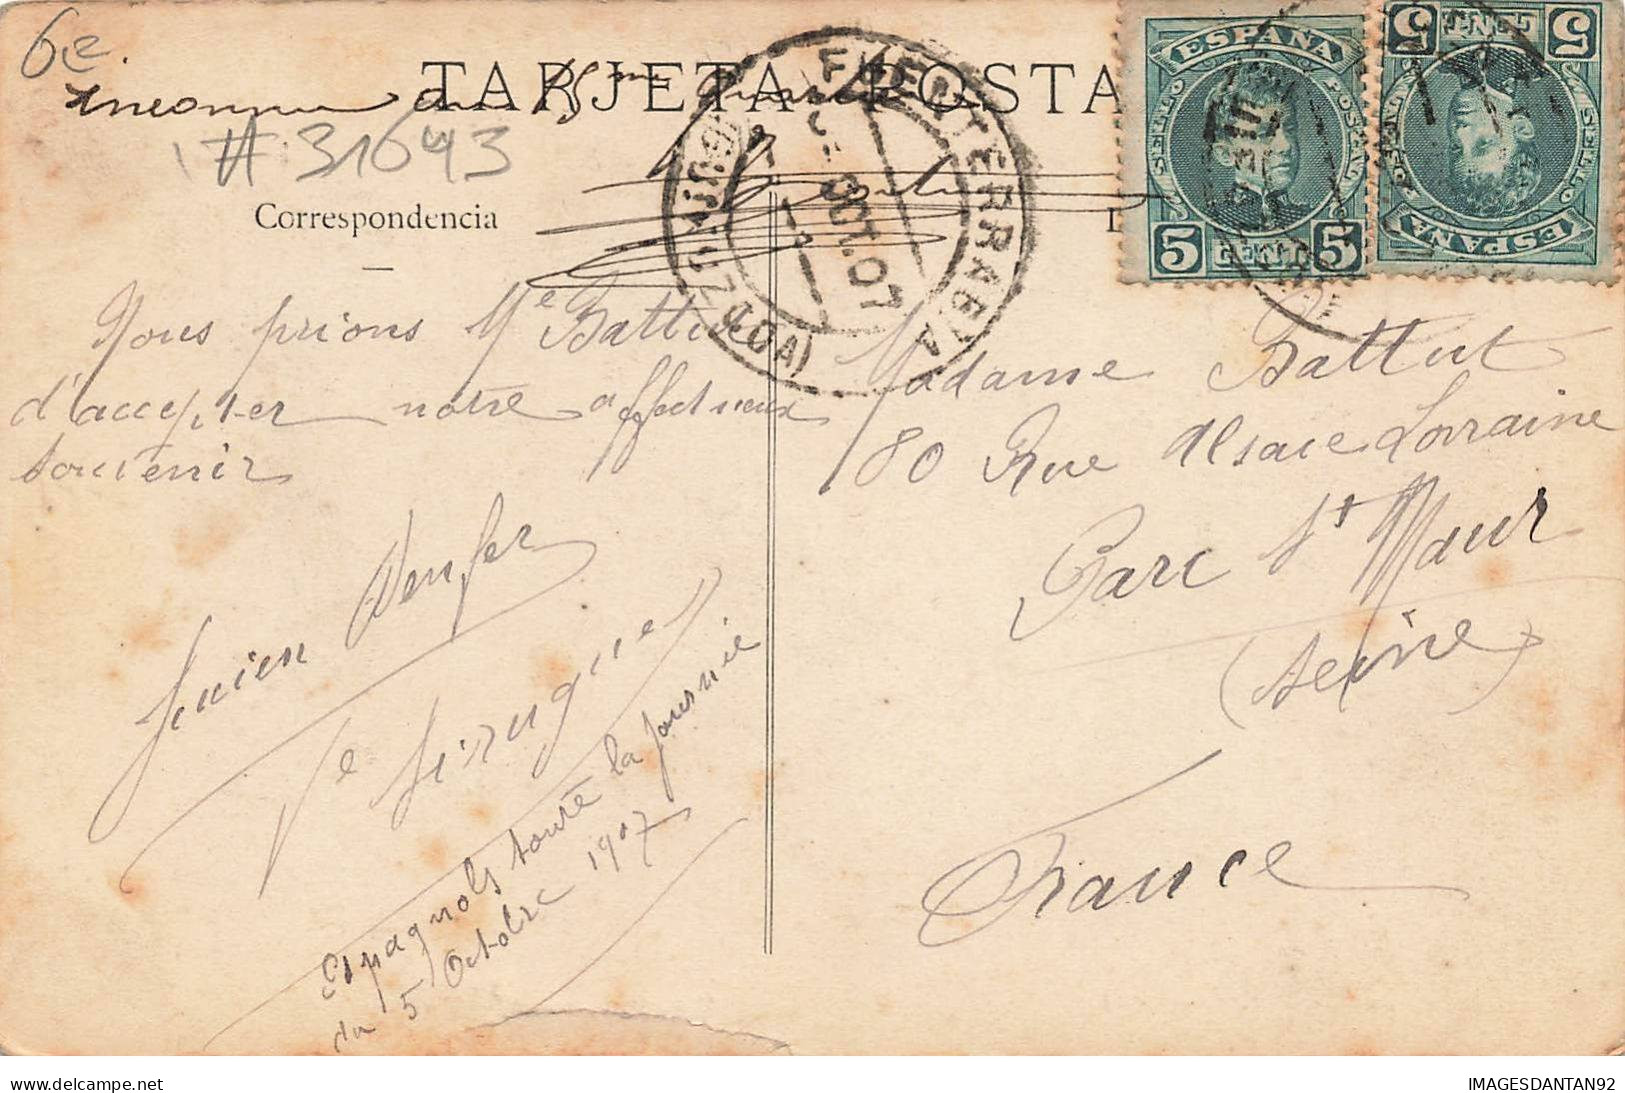 6e
TARJETA POSTA
Inconnu
# 31643
Correspondencia
FUENTERRABIA
(GUIPUZCOA)
OCT. 07
ESPAÑA
SELLO POSTAL
5 CENT 5
ESPAÑA
SELLO
5 CENT 5
Nous prions Me Battut
d'accepter notre affectueux
souvenir
Lucien
Espagnols toute la journée
du 5 Octobre 1907
Madame Battut
80 Rue Alsace Lorraine
Parc St Maur
(Seine)
France
www.delcampe.net
IMAGESDANTAN92